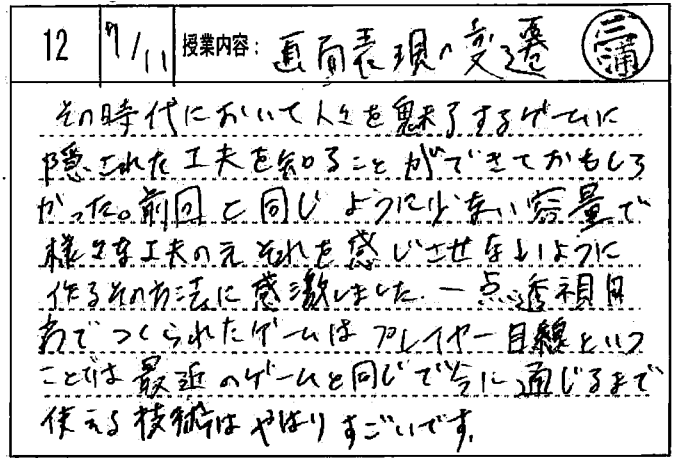 12 7/11 授業内容: 画面表現の変遷 三浦
その時代において人々を魅了するゲームに
隠された工夫を知ることができておもしろ
かった。前回と同じように少ない容量で
様々な工夫のえそれを感じさせないように
作るその方法に感激しました。一点透視図
法でつくられたゲームはプレイヤー目線という
ことでは最近のゲームと同じで今に通じるまで
使える技術はやはりすごいです。